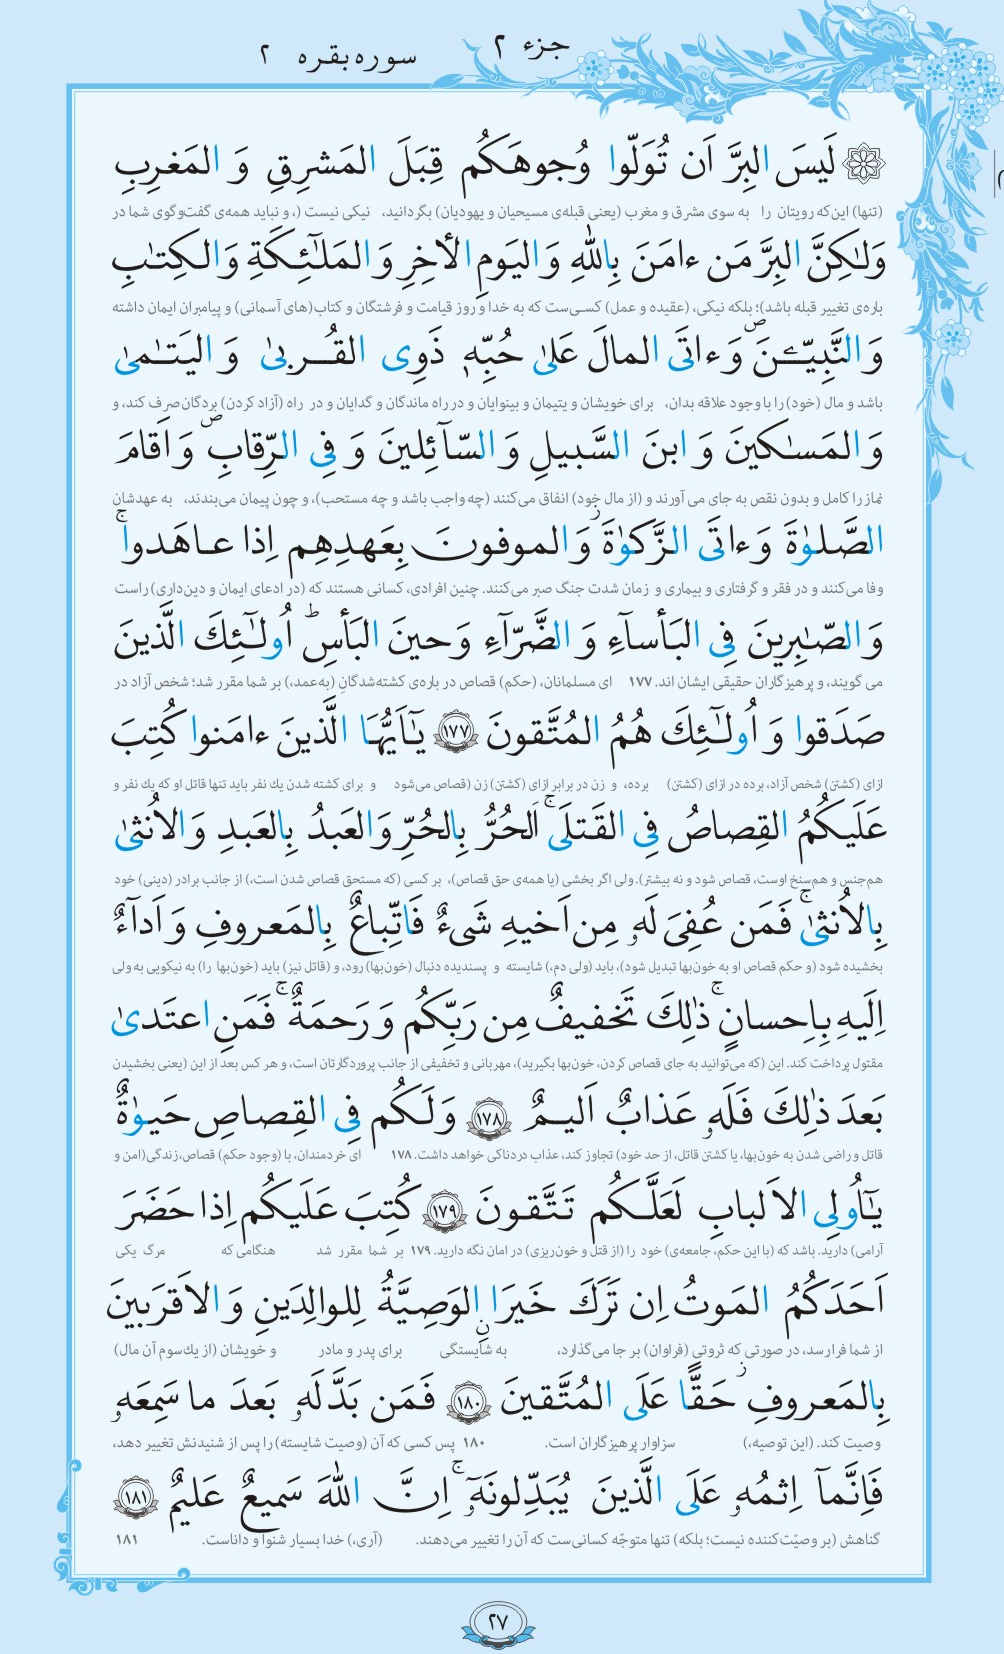 جزء ۲
سوره بقره ۲
لَیسَ البِرَّ اَن تُوَلّوا وُجوهَکُم قِبَلَ المَشرِقِ وَ المَغرِبِ
(تنها) این‌که رویتان را به سوی مشرق و مغرب (یعنی قبله‌ی مسیحیان و یهودیان) بگردانید، نیکی نیست (، و نباید همه‌ی گفت‌وگوی شما در
وَلٰکِنَّ البِرَّ مَن ءامَنَ بِاللّٰهِ وَ الیَومِ الأخِرِ وَ المَلٰٓئِکَةِ وَ الکِتٰبِ
باره‌ی تغییر قبله باشد)؛ بلکه نیکی، (عقیده و عمل) کسی‌ست که به خدا و روز قیامت و فرشتگان و کتاب(های آسمانی) و پیامبران ایمان داشته
وَ النَّبِیّـۧنَ ۖ وَ ءاتَی المالَ عَلیٰ حُبِّهٖ ذَوِی القُربیٰ وَ الیَتٰمیٰ
باشد و مال (خود) را با وجود علاقه بدان، برای خویشان و یتیمان و بینوایان و در راه ماندگان و گدایان و در راه (آزاد کردن) بردگان صرف کند، و
وَ المَسٰکینَ وَ ابنَ السَّبیلِ وَ السّآئِلینَ وَ فِی الرِّقابِ ۖ وَ اَقامَ
نماز را کامل و بدون نقص به جای می آورند و (از مال خود) انفاق می‌کنند (چه واجب باشد و چه مستحب)، و چون پیمان می‌بندند، به عهدشان
الصَّلوٰةَ وَ ءاتَی الزَّکوٰةَ ز وَ الموفونَ بِعَهدِهِم اِذا عاهَدوا ۚ
وفا می‌کنند و در فقر و گرفتاری و بیماری و زمان شدت جنگ صبر می‌کنند. چنین افرادی، کسانی هستند که (در ادعای ایمان و دین‌داری) راست
وَ الصّٰبِرینَ فِی البَأسآءِ وَ الضَّرّآءِ وَ حینَ البَأسِ ؕ اُولٰٓئِکَ الَّذینَ
می گویند، و پرهیزگاران حقیقی ایشان اند. ۱۷۷ ای مسلمانان، (حکم) قصاص در باره‌ی کشته‌شدگانِ (به‌عمد،) بر شما مقرر شد؛ شخص آزاد در
صَدَقوا وَ اُولٰٓئِکَ هُمُ المُتَّقونَ ۱۷۷ یٰٓاَیُّهَا الَّذینَ ءامَنوا کُتِبَ
ازای (کشتن) شخص آزاد، برده در ازای (کشتن) برده، و زن در برابر ازای (کشتن) زن (قصاص می‌شود و برای کشته شدن یك نفر باید تنها قاتل او که یك نفر و
عَلَیکُمُ القِصاصُ فِی القَتلَی ۚ اَلحُرُّ بِالحُرِّ وَ العَبدُ بِالعَبدِ وَ الاُنثیٰ
هم‌جنس و هم‌سنخ اوست، قصاص شود و نه بیشتر). ولی اگر بخشی (یا همه‌ی حق قصاص)، بر کسی (که مستحق قصاص شدن است،) از جانب برادر (دینی) خود
بِالاُنثیٰ ۚ فَمَن عُفِیَ لَهٗ مِن اَخیهِ شَیءٌ فَاتِّباعٌ بِالمَعروفِ وَ اَدآءٌ
بخشیده شود (و حکم قصاص او به خون‌بها تبدیل شود)، باید (ولی دم،) شایسته و پسندیده دنبال (خون‌بها) رود، و (قاتل نیز) باید (خون‌بها را) به نیکویی به ولی
اِلَیهِ بِاِحسانٍ ۚ ذٰلِکَ تَخفیفٌ مِن رَبِّکُم وَ رَحمَةٌ ۚ فَمَنِ اعتَدیٰ
مقتول پرداخت کند. این (که می‌توانید به جای قصاص کردن، خون‌بها بگیرید)، مهربانی و تخفیفی از جانب پروردگارتان است، و هر کس بعد از این (یعنی بخشیدن
بَعدَ ذٰلِکَ فَلَهٗ عَذابٌ اَلیمٌ ۱۷۸ وَ لَکُم فِی القِصاصِ حَیوٰةٌ
قاتل و راضی شدن به خون‌بها، یا کشتن قاتل، از حد خود) تجاوز کند، عذاب دردناکی خواهد داشت. ۱۷۸ ای خردمندان، با (وجود حکم) قصاص، زندگی (امن و
یٰٓاُولِی الاَلبابِ لَعَلَّکُم تَتَّقونَ ۱۷۹ کُتِبَ عَلَیکُم اِذا حَضَرَ
آرامی) دارید. باشد که (با این حکم، جامعه‌ی) خود را (از قتل و خون‌ریزی) در امان نگه دارید. ۱۷۹ بر شما مقرر شد هنگامی که مرگ یکی
اَحَدَکُمُ المَوتُ اِن تَرَکَ خَیرَا ۨالوَصِیَّةُ لِلوالِدَینِ وَ الاَقرَبینَ
از شما فرارسد، در صورتی که ثروتی (فراوان) بر جا می‌گذارد، به شایستگی برای پدر و مادر و خویشان (از یك‌سوم آن مال)
بِالمَعروفِ ز حَقًّا عَلَی المُتَّقینَ ۱۸۰ فَمَن بَدَّلَهٗ بَعدَ ما سَمِعَهٗ
وصیت کند. (این توصیه،) سزاوار پرهیزگاران است. ۱۸۰ پس کسی که آن (وصیت شایسته) را پس از شنیدنش تغییر دهد،
فَاِنَّمآ اِثمُهٗ عَلَی الَّذینَ یُبَدِّلونَهٗٓ ۚ اِنَّ اللّٰهَ سَمیعٌ عَلیمٌ ۱۸۱
گناهش (بر وصیّت‌کننده نیست؛ بلکه) تنها متوجّه کسانی‌ست که آن را تغییر می‌دهند. (آری،) خدا بسیار شنوا و داناست. ۱۸۱
۲۷